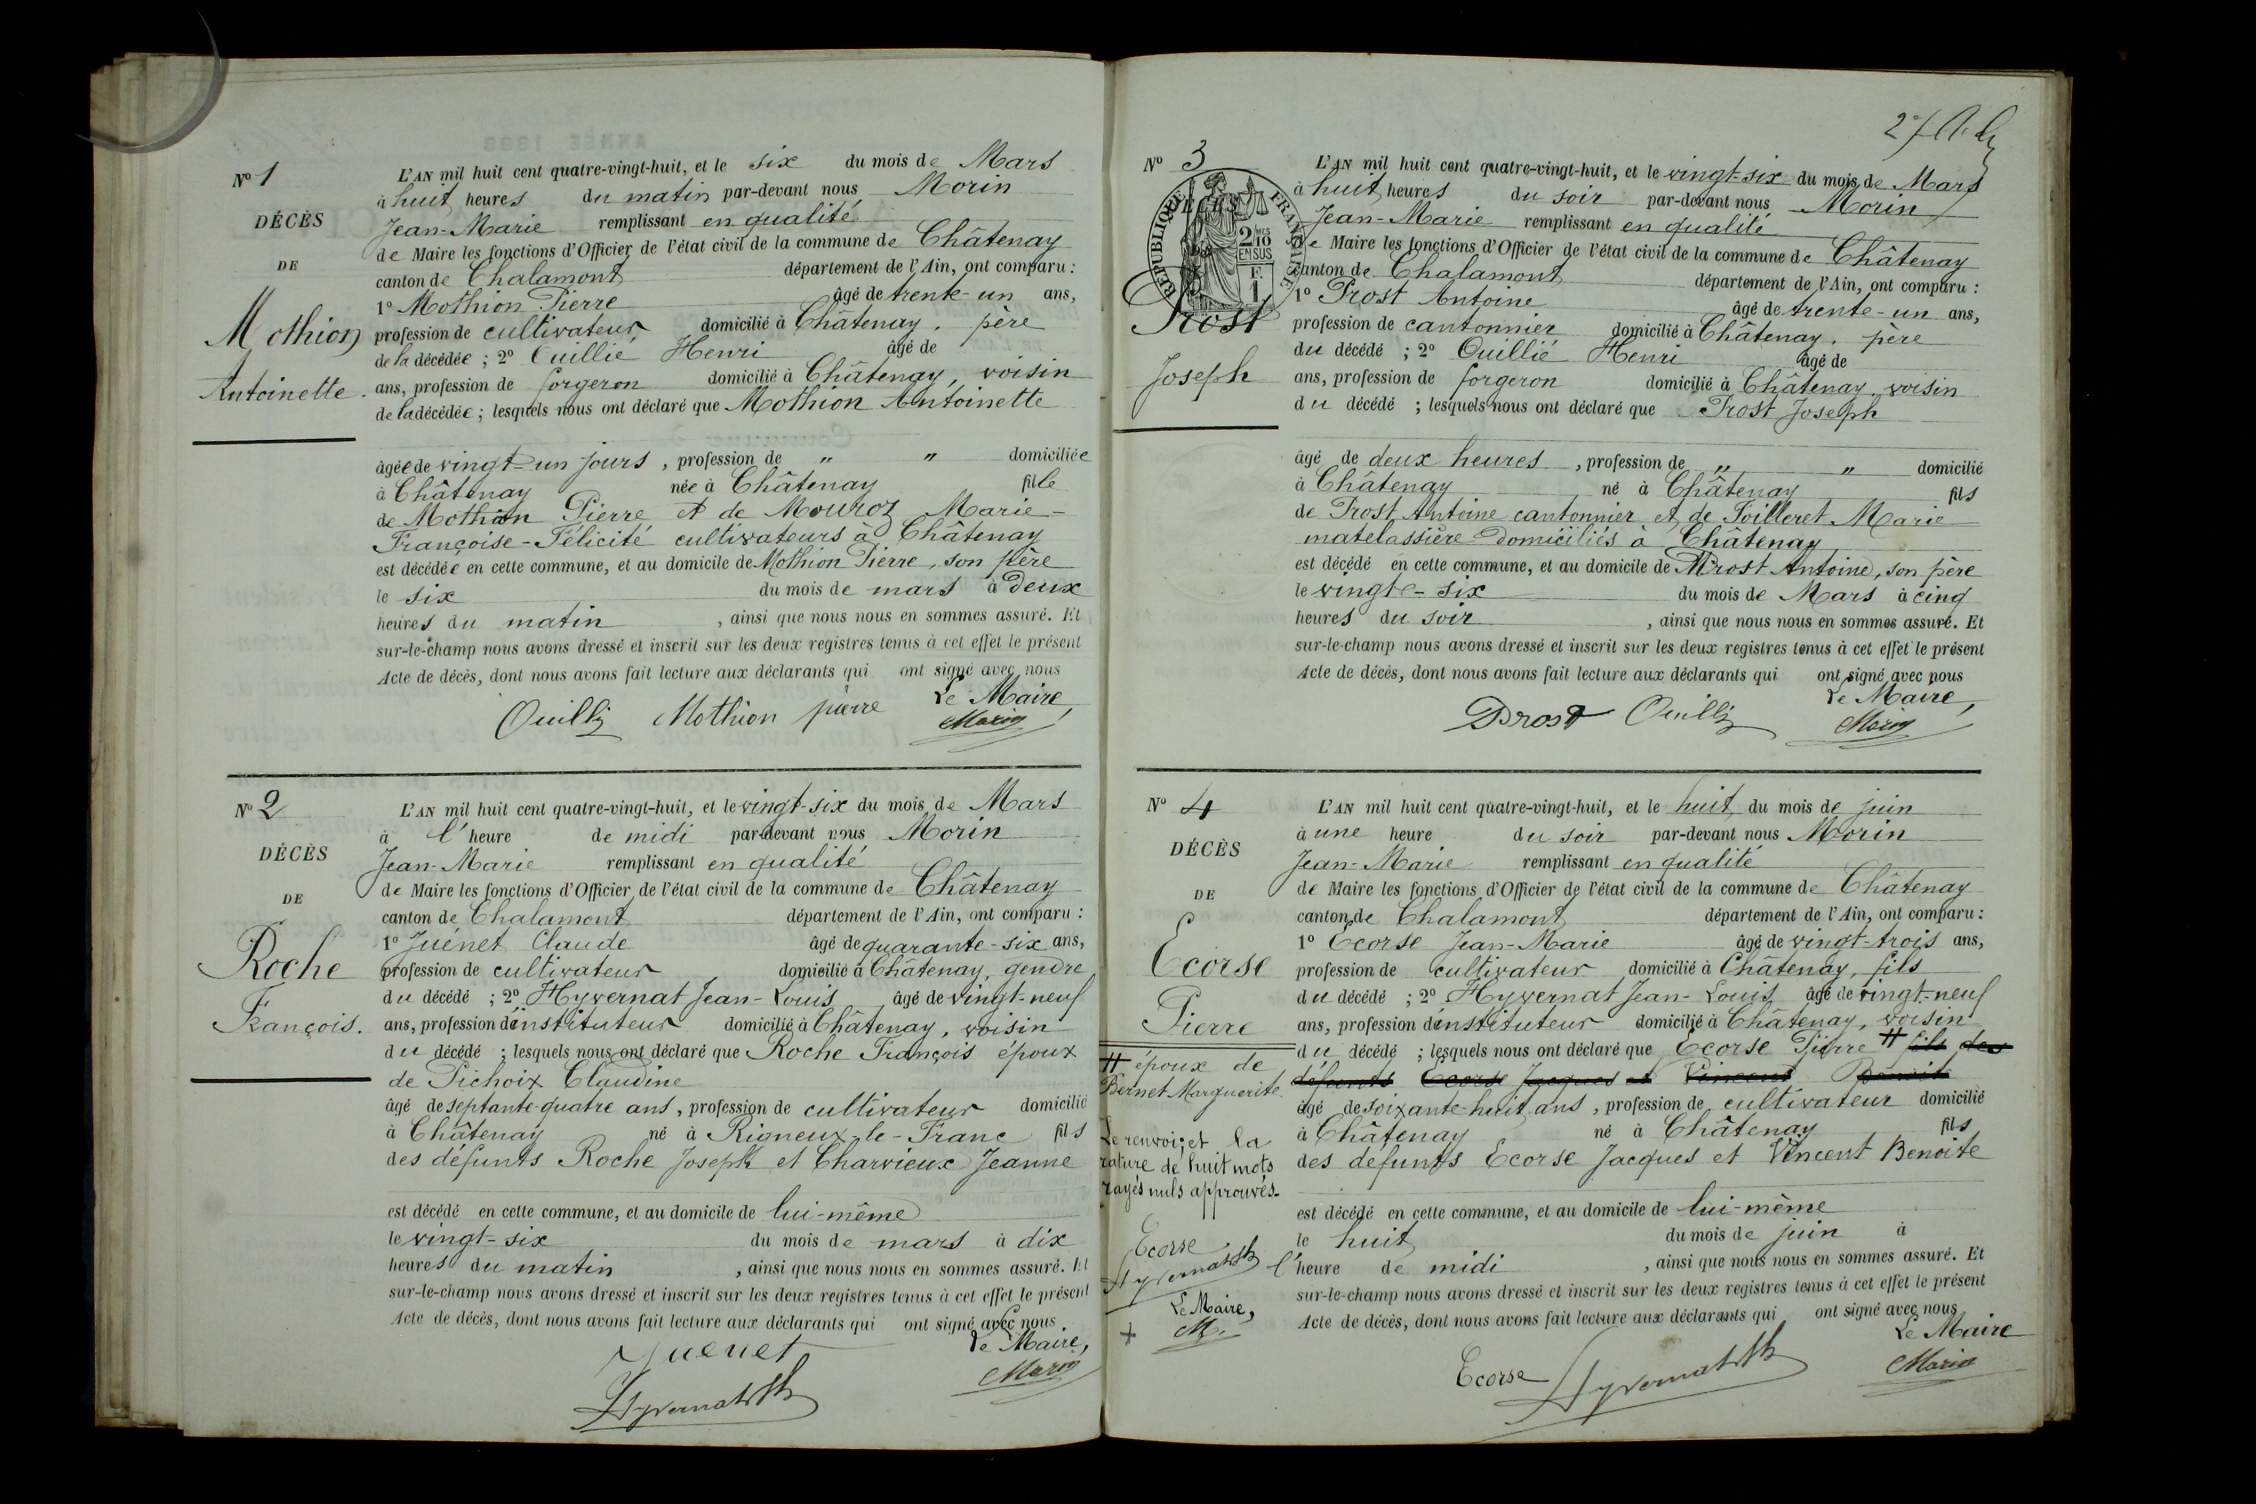 N° 1
DÉCÈS
DE
Mothion
Antoinette.
L'AN mil huit cent quatre-vingt-huit, et le six du mois de Mars
à huit heures du matin par-devant nous Morin
Jean-Marie remplissant en qualité
de Maire les fonctions d'Officier de l'état civil de la commune de Châtenay
canton de Chalamont département de l'Ain, ont comparu :
1° Mothion Pierre âgé de trente-un ans,
profession de cultivateur domicilié à Châtenay, père
de la décédée ; 2° Ouillié Henri âgé de
ans, profession de forgeron domicilié à Châtenay, voisin
de la décédée ; lesquels nous ont déclaré que Mothion Antoinette
âgée de vingt-un jours, profession de " " domiciliée
à Châtenay née à Châtenay fille
de Mothion Pierre et de Mouroz Marie-
Françoise-Félicité cultivateurs à Châtenay
est décédée en cette commune, et au domicile de Mothion Pierre, son père
le six du mois de mars à deux
heures du matin, ainsi que nous nous en sommes assuré. Et
sur-le-champ nous avons dressé et inscrit sur les deux registres tenus à cet effet le présent
Acte de décès, dont nous avons fait lecture aux déclarants qui ont signé avec nous
Le Maire,
Ouillié Mothion pierre Morin
N° 2
DÉCÈS
DE
Roche
François.
L'AN mil huit cent quatre-vingt-huit, et le vingt-six du mois de Mars
à l'heure de midi par-devant nous Morin
Jean-Marie remplissant en qualité
de Maire les fonctions d'Officier de l'état civil de la commune de Châtenay
canton de Chalamont département de l'Ain, ont comparu :
1° Juénet Claude âgé de quarante-six ans,
profession de cultivateur domicilié à Châtenay, gendre
du décédé ; 2° Hyvernat Jean-Louis âgé de vingt-neuf
ans, profession d'instituteur domicilié à Châtenay, voisin
du décédé ; lesquels nous ont déclaré que Roche François époux
de Pichoix Claudine
âgé de septante-quatre ans, profession de cultivateur domicilié
à Châtenay né à Rigneux-le-Franc fils
des défunts Roche Joseph et Charvieux Jeanne
est décédé en cette commune, et au domicile de lui-même
le vingt-six du mois de mars à dix
heures du matin, ainsi que nous nous en sommes assuré. Et
sur-le-champ nous avons dressé et inscrit sur les deux registres tenus à cet effet le présent
Acte de décès, dont nous avons fait lecture aux déclarants qui ont signé avec nous
Le Maire,
Juenet
Morin
Hyvernat
2e
N° 3
RÉPUBLIQUE FRANÇAISE
2/10 MES
EN SUS
F.
1
Prost
Joseph
L'AN mil huit cent quatre-vingt-huit, et le vingt-six du mois de Mars
à huit heures du soir par-devant nous Morin
Jean-Marie remplissant en qualité
de Maire les fonctions d'Officier de l'état civil de la commune de Châtenay
canton de Chalamont département de l'Ain, ont comparu :
1° Prost Antoine âgé de trente-un ans,
profession de cantonnier domicilié à Châtenay. père
du décédé ; 2° Ouillié Henri âgé de
ans, profession de forgeron domicilié à Châtenay, voisin
du décédé ; lesquels nous ont déclaré que Prost Joseph
âgé de deux heures, profession de " " domicilié
à Châtenay né à Châtenay fils
de Prost Antoine cantonnier et de Poilleret Marie
matelassière domiciliés à Châtenay
est décédé en cette commune, et au domicile de Prost Antoine, son père
le vingt-six du mois de Mars à cinq
heures du soir, ainsi que nous nous en sommes assuré. Et
sur-le-champ nous avons dressé et inscrit sur les deux registres tenus à cet effet le présent
Acte de décès, dont nous avons fait lecture aux déclarants qui ont signé avec nous
Le Maire,
Prost Ouillié Morin
N° 4
DÉCÈS
DE
Ecorse
Pierre
# époux de
Bernet Marguerite
Le renvoi, et la
rature de huit mots
rayés nuls approuvés.
Ecorse
Hyvernat
Le Maire,
M.
L'AN mil huit cent quatre-vingt-huit, et le huit du mois de juin
à une heure du soir par-devant nous Morin
Jean-Marie remplissant en qualité
de Maire les fonctions d'Officier de l'état civil de la commune de Châtenay
canton de Chalamont département de l'Ain, ont comparu :
1° Ecorse Jean-Marie âgé de vingt-trois ans,
profession de cultivateur domicilié à Châtenay, fils
du décédé ; 2° Hyvernat Jean-Louis âgé de vingt-neuf
ans, profession d'instituteur domicilié à Châtenay, voisin
du décédé ; lesquels nous ont déclaré que Ecorse Pierre # fils des
défunts Ecorse Jacques et Vincent Benoite
âgé de soixante-huit ans, profession de cultivateur domicilié
à Châtenay né à Châtenay fils
des défunts Ecorse Jacques et Vincent Benoite
est décédé en cette commune, et au domicile de lui-même
le huit du mois de juin à
l'heure de midi, ainsi que nous nous en sommes assuré. Et
sur-le-champ nous avons dressé et inscrit sur les deux registres tenus à cet effet le présent
Acte de décès, dont nous avons fait lecture aux déclarants qui ont signé avec nous
Le Maire
Ecorse Hyvernat Morin